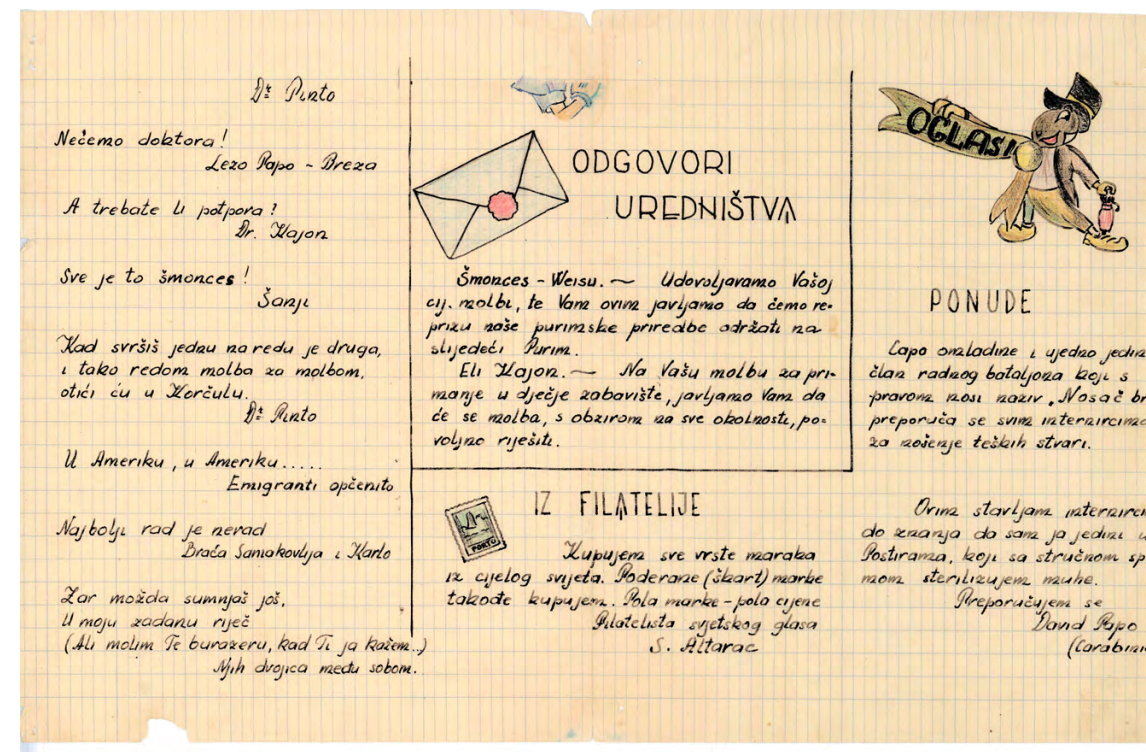 Dr Pinto
Nećemo doktora!
Lezo Papo - Breza
A trebate li potpora?
Dr. Kajon
Sve je to šmonces!
Šanji
Kad svršiš jednu na redu je druga,
i tako redom molba za molbom,
otići ću u Korčulu.
Dr Pinto
U Ameriku, u Ameriku.....
Emigranti općenito
Najbolji rad je nerad
Braća Samakovlija i Karlo
Zar možda sumnjaš još,
U moju zadanu riječ
(Ali molim Te burazeru, kad Ti ja kažem..)
Njih dvojica među sobom.
ODGOVORI
UREDNIŠTVA
Šmonces - Weisu. — Udovoljavamo Vašoj
cij. molbi, te Vam ovim javljamo da ćemo re-
prizu naše purimske priredbe održati na
slijedeći Purim.
Eli Kajon. — Na Vašu molbu za pri-
manje u dječje zabavište, javljamo Vam da
će se molba, s obzirom na sve okolnosti, po-
voljno riješiti.
IZ FILATELIJE
PORTO
Kupujem sve vrste maraka
iz cijelog svijeta. Poderane (škart) marke
takođe kupujem. Pola marke - pola cijene
Filatelista svjetskog glasa
S. Altarac
OGLASI
PONUDE
Capo omladine i ujedno jedini
član radnog bataljona koji s
pravom nosi naziv „Nosač br
preporuča se svim internircima
za nošenje teških stvari.
Ovim stavljam internirci
do znanja da sam ja jedini u
Postirama, koji sa stručnom sp
mom sterilizujem muhe.
Preporučujem se
David Papo
(Carabini